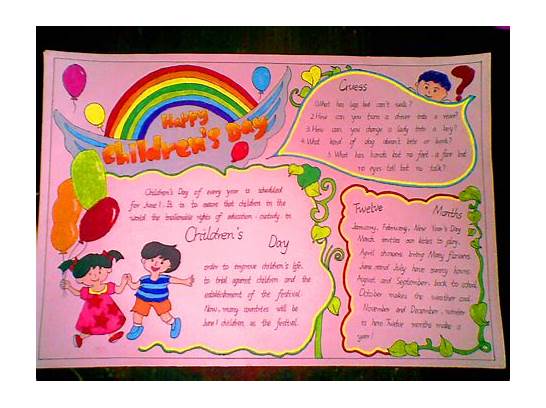 Happy
Children's Day
Guess
1.What has legs but can't walk?
2.How can you turn a driver into a river?
3.How can you change a lady into a lazy?
4.What kind of dog doesn't bite or bark?
5.What has hands but no feet, a face but
no eyes tell but no talk?
Children's Day of every year is scheduled
for June 1. It is to assure that children in the
world the inalienable rights of education, custody in
Children's
Day
order to improve children's life,
to trial against children and the
establishment of the festival.
Now, many countries will be
June 1 children, as the festival.
Twelve Months
January, February, New Year's Day
March invites our kites to play.
April showers bring May flowers
June and July have sunny hours.
August and September, back to school
October makes the weather cool.
November and December,
is here. Twelve months make a
year!